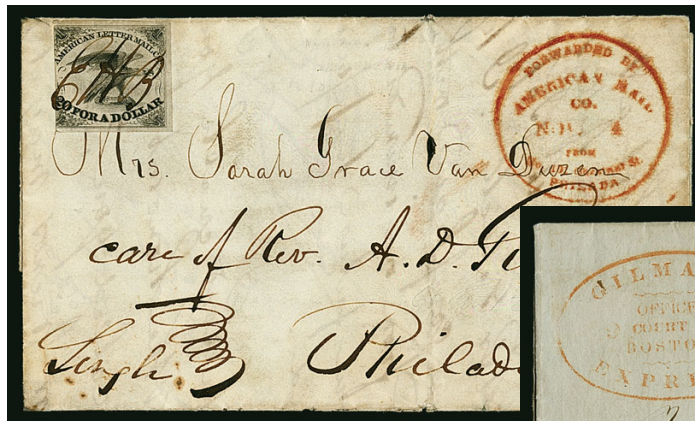 AMERICAN LETTER MAIL CO.
20 FOR A DOLLAR
FORWARDED BY
AMERICAN MAIL
CO.
NOV 4
FROM
PHILADA
Mrs. Sarah Grace Van Duzen
care of Rev. A. D.
Single
Philad
GILMA
OFFICE
COURT
BOSTO
EXPRE